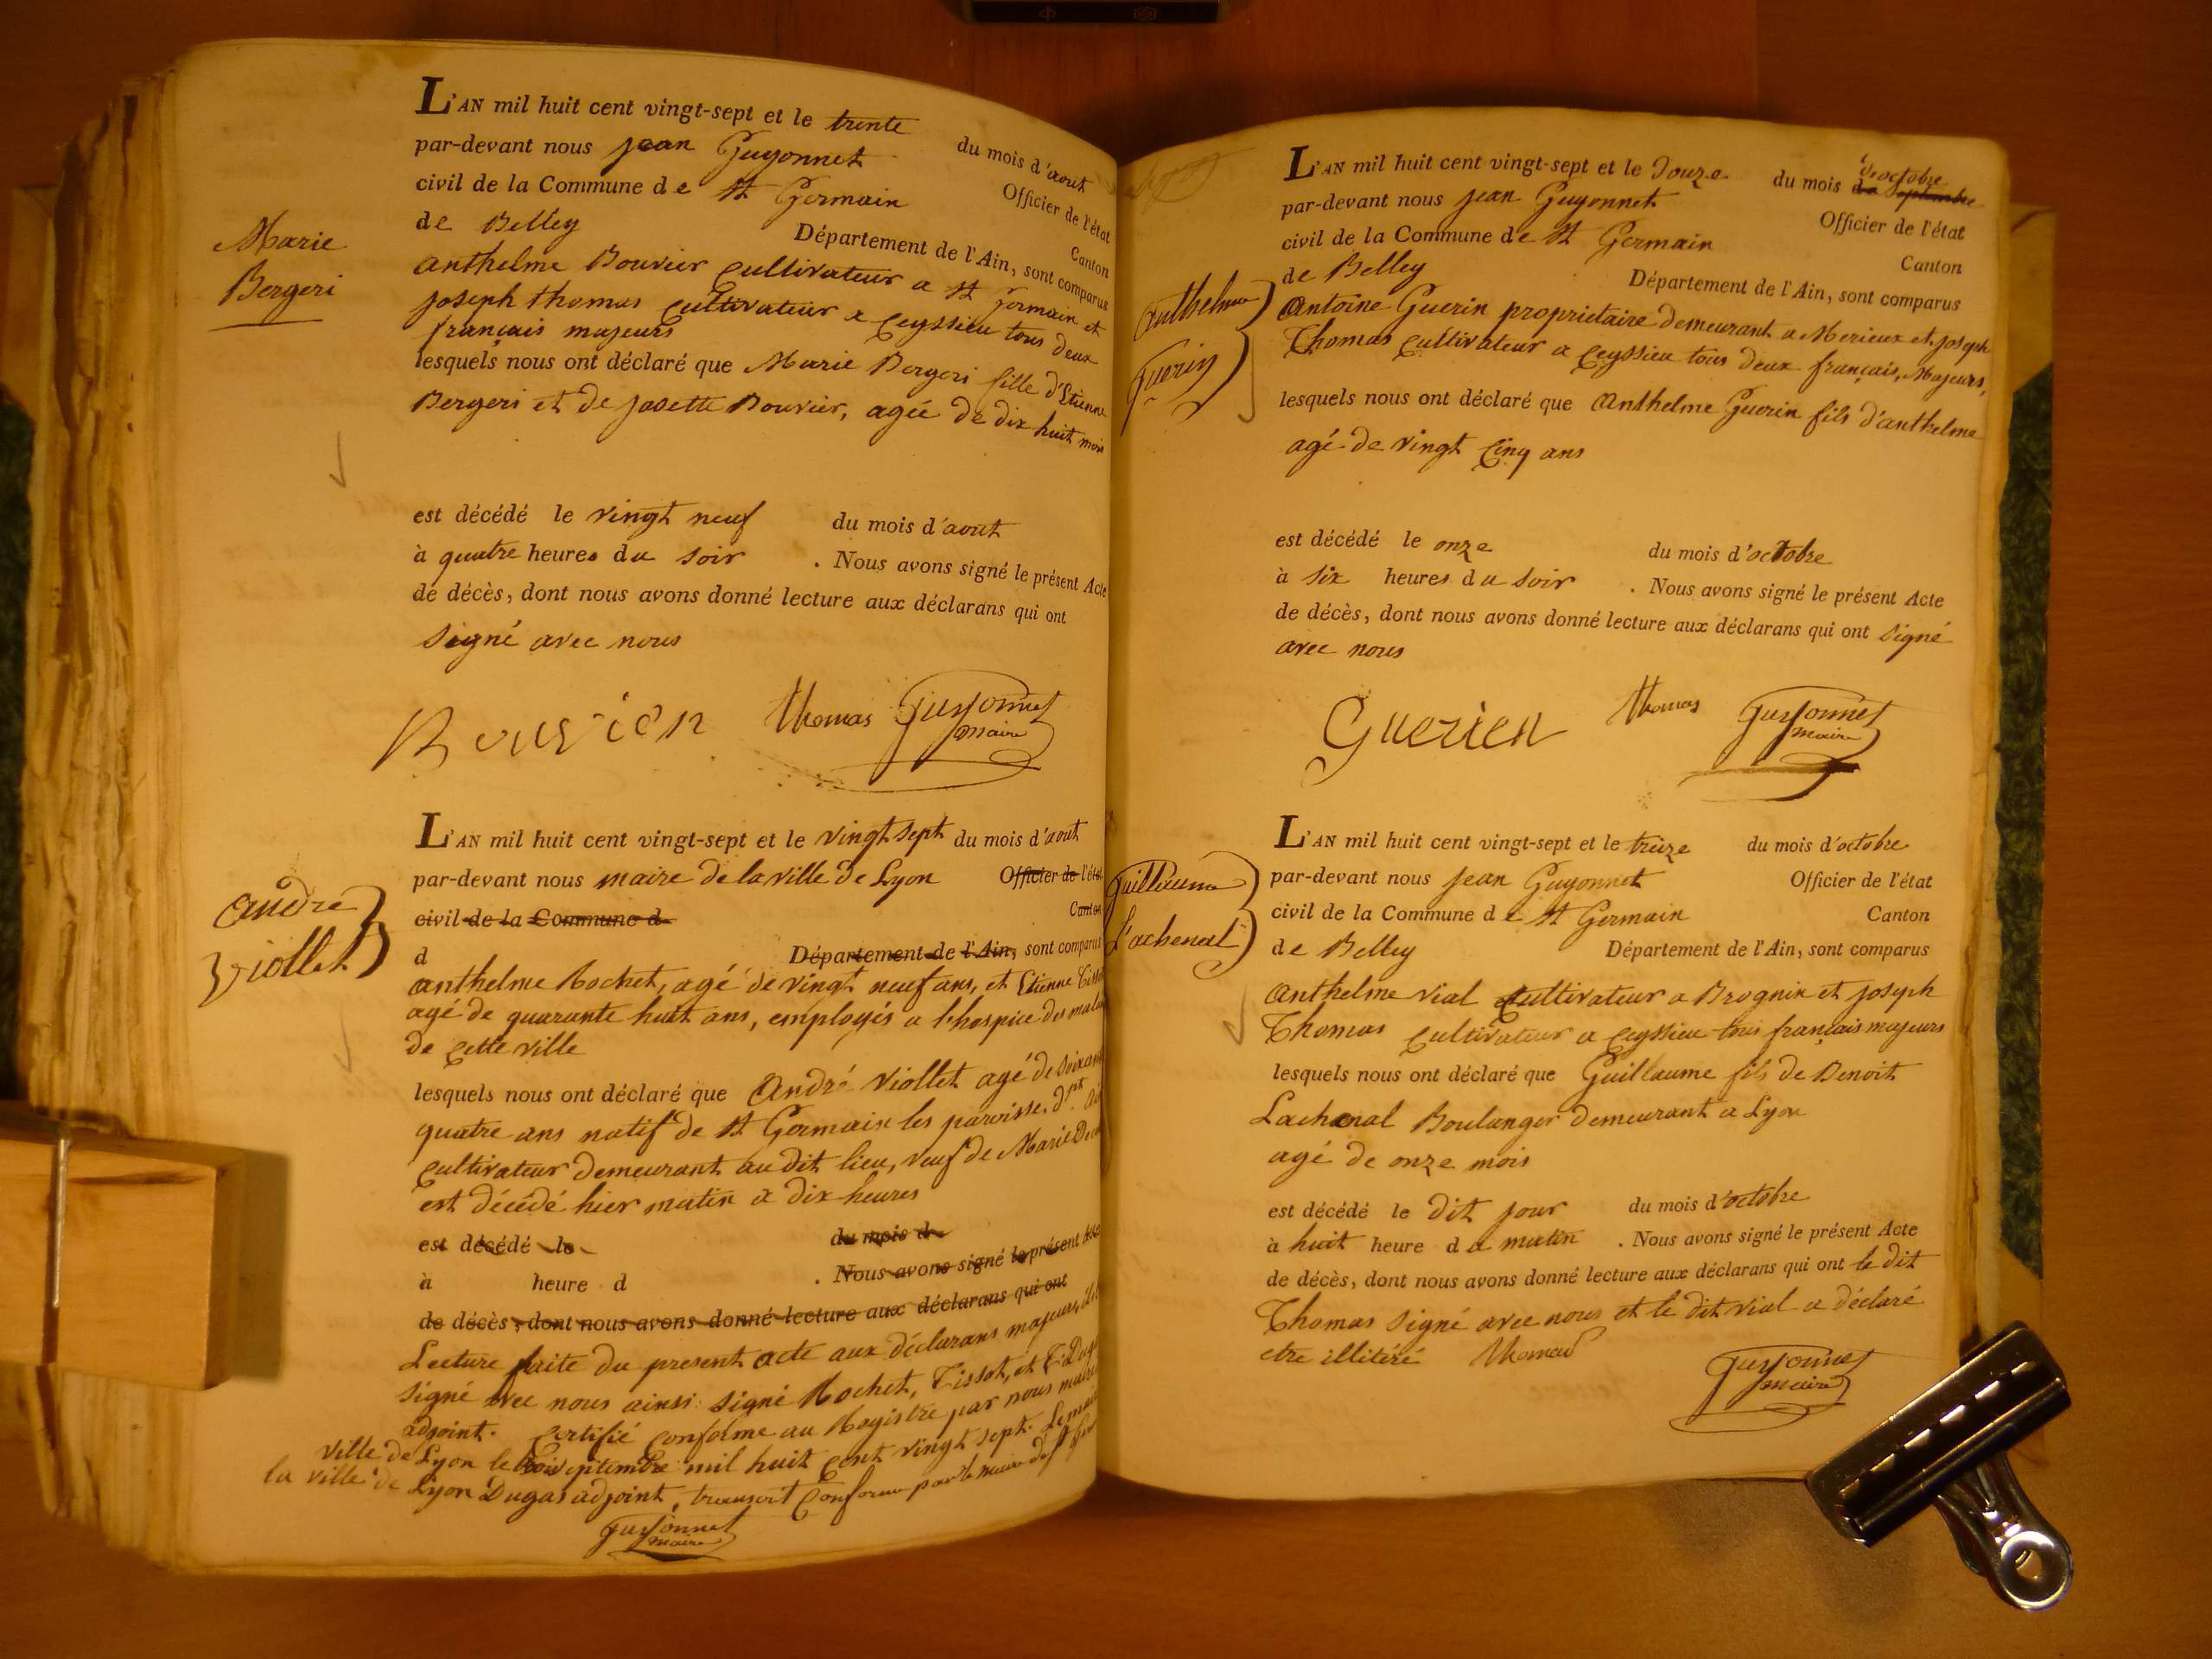 Marie
Bergeri
L'AN mil huit cent vingt-sept et le trente du mois d'aout
par-devant nous jean Guyonnet Officier de l'état
civil de la Commune de St Germain Canton
de Belley Département de l'Ain, sont comparus
anthelme Bouvier cultivateur a St Germain et
joseph thomas cultivateur a Ceyssieu tous deux
français majeurs
lesquels nous ont déclaré que Marie Bergeri fille d'Etienne
Bergeri et de josette Bouvier, agée de dix huit mois
est décédé le vingt neuf du mois d'aout
à quatre heures du soir . Nous avons signé le présent Acte
de décès, dont nous avons donné lecture aux déclarans qui ont
signé avec nous
Thomas Guyonnet
maire
andré
viollet
L'AN mil huit cent vingt-sept et le vingt sept du mois d'aout
par-devant nous maire de la ville de Lyon Officier de l'état
civil de la Commune d Canton
d Département de l'Ain, sont comparus
anthelme Rochet, agé de vingt neuf ans, et Etienne
agé de quarante huit ans, employés a l'hospice des
de cette ville
lesquels nous ont déclaré que André viollet agé de
quatre ans natif de St Germain les paroisse. dpt.
cultivateur demeurant au dit lieu, veuf de Marie
est décédé hier matin a dix heures
est décédé le du mois d
à heure d . Nous avons signé le présent Acte
de décès, dont nous avons donné lecture aux déclarans qui ont
Lecture faite du present acte aux déclarans majeurs,
signé avec nous ainsi signé Rochet, Tissot, et
adjoint. certifié conforme au Registre par nous maire
ville de Lyon le trois septembre mil huit cent vingt sept.
la ville de Lyon Dugas adjoint, transcrit conforme par le maire de St
Guyonnet
maire
anthelme
Guerin
L'AN mil huit cent vingt-sept et le douze du mois d'octobre
du septembre
par-devant nous jean Guyonnet Officier de l'état
civil de la Commune de St Germain Canton
de Belley Département de l'Ain, sont comparus
Antoine Guerin proprietaire demeurant a Merieux et joseph
Thomas cultivateur a Ceyssieu tous deux français, Majeurs,
lesquels nous ont déclaré que Anthelme Guerin fils d'anthelme
agé de vingt cinq ans
est décédé le onze du mois d'octobre
à six heures du soir . Nous avons signé le présent Acte
de décès, dont nous avons donné lecture aux déclarans qui ont signé
avec nous
Guerien Thomas Guyonnet
maire
Guillaume
Lachenal
L'AN mil huit cent vingt-sept et le treize du mois d'octobre
par-devant nous jean Guyonnet Officier de l'état
civil de la Commune de St Germain Canton
de Belley Département de l'Ain, sont comparus
Anthelme vial cultivateur a Brognin et joseph
Thomas cultivateur a Ceyssieu tous français majeurs
lesquels nous ont déclaré que Guillaume fils de Benoit
Lachenal Boulanger demeurant a Lyon
agé de onze mois
est décédé le dit jour du mois d'octobre
à huit heure du matin . Nous avons signé le présent Acte
de décès, dont nous avons donné lecture aux déclarans qui ont le dit
Thomas signé avec nous et le dit vial a déclaré
etre illitéré Thomas Guyonnet
maire